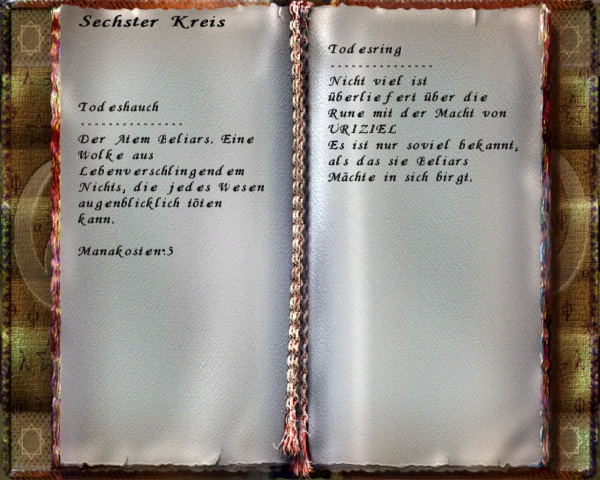 Sechster Kreis
Todeshauch
---------------
Der Atem Beliars. Eine
Wolke aus
Lebenverschlingendem
Nichts, die jedes Wesen
augenblicklich töten
kann.
Manakosten:5
Todesring
---------------
Nicht viel ist
überliefert über die
Rune mit der Macht von
URIZIEL
Es ist nur soviel bekannt,
als das sie Beliars
Mächte in sich birgt.